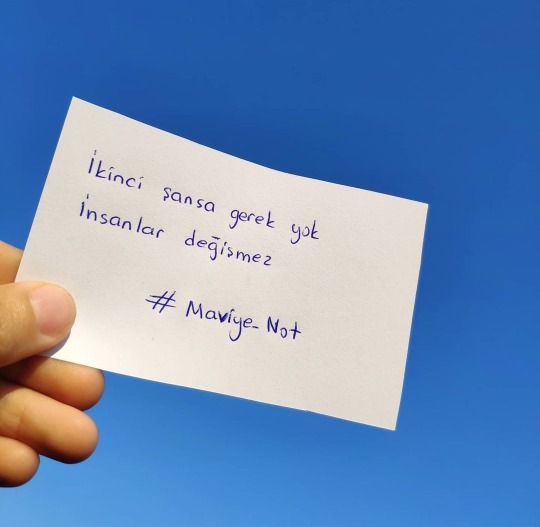 İkinci şansa gerek yok
İnsanlar değişmez
# Maviye_Not